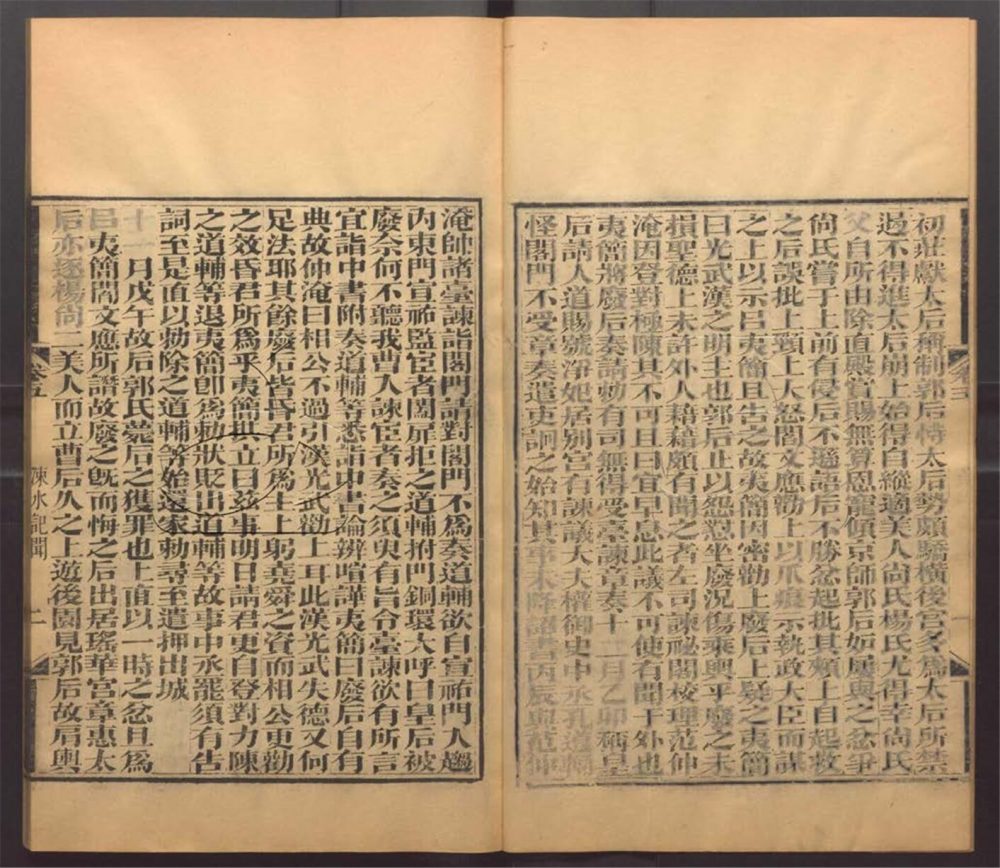 初莊獻太后稱制郭后恃太后勢頗驕橫後宮多爲太后所禁
遏不得進太后崩上始得自縱適美人尙氏楊氏尤得幸尙氏
父自所由除直殿賞賜無算恩寵傾京師郭后妬屢與之忿爭
尙氏嘗于上前有侵后不遜語后不勝忿起批其頰上自起救
之后誤批上頸上大怒閻文應勸上以爪痕示執政大臣而謀
之上以示呂夷簡且告之故夷簡因密勸上廢后上疑之夷簡
曰光武漢之明主也郭后止以怨懟坐廢況傷乘輿乎廢之未
損聖德上未許外人籍籍頗有聞之者左司諫祕閣校理范仲
淹因登對極陳其不可且曰宜早息此議不可使有聞于外也
夷簡將廢后奏請勅有司無得受臺諫章奏十二月乙卯稱皇
后請入道賜號淨妃居別宮有諫議大夫權御史中丞孔道輔
怪閣門不受章奏遣吏詗之始知其事未降詔書丙辰與范仲
淹帥諸臺諫詣閣門請對閣門不爲奏道輔欲自宣祐門入趨
內東門宣祐監宦者闔扉拒之道輔拊門銅環大呼曰皇后被
廢奈何不聽我曹入諫宦者奏之須臾有旨令臺諫欲有所言
宜詣中書附奏道輔等悉詣中書論辨喧譁夷簡曰廢后自有
典故仲淹曰相公不過引漢光武勸上耳此漢光武失德又何
足法耶其餘廢后皆昏君所爲主上躬堯舜之資而相公更勸
之效昏君所爲乎夷簡拱立曰茲事明日請君更自登對力陳
之道輔等退夷簡卽爲勅狀貶出道輔等故事中丞罷須有告
詞至是直以勅除之道輔等始還家勅尋至遣押出城
十一月戊午故后郭氏薨后之獲罪也上直以一時之忿且爲
呂夷簡閻文應所譖故廢之旣而悔之后出居瑤華宮章惠太
后亦逐楊尙二美人而立曹后久之上遊後園見郭后故肩輿
卷三
涑水記聞